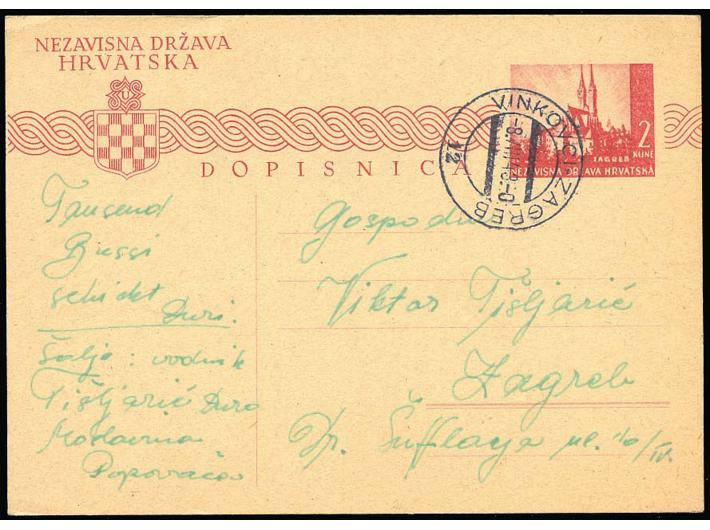 NEZAVISNA DRŽAVA
HRVATSKA
DOPISNICA
VINKOVCI ZAGREB
12
ZAGREB
2
KUNE
NEZAVISNA DRŽAVA HRVATSKA
Tausend
Bussi
schickt
Đuri.
Šalje: vodnik
Tišljarić Đuro
Moslavina
Popovača
Gospodin
Viktor Tišljarić
Zagreb
Dr. Šufflaya ul. 10/IV.